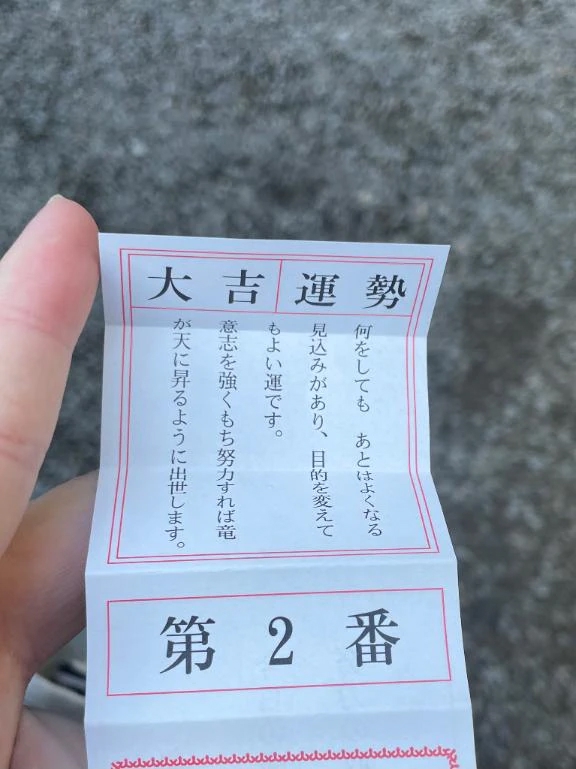 大吉 運勢
何をしても　あとはよくなる
見込みがあり、目的を変えて
もよい運です。
意志を強くもち努力すれば竜
が天に昇るように出世します。
第2番